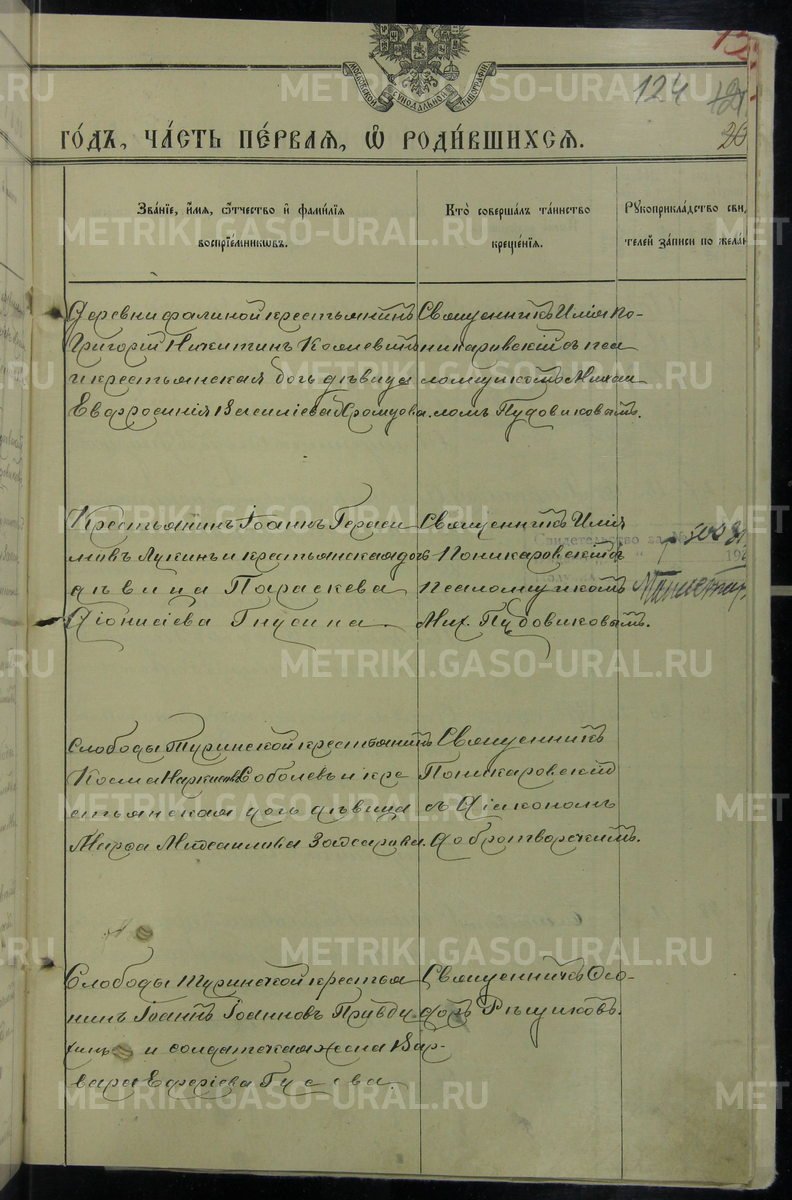 МОСКОВСКОЙ СѴНОДАЛЬНОЙ ТИПОГРАФІИ
124
ГО́ДЪ, ЧА́СТЬ ПЕ́РВАЯ, Ѽ РОДИ́ВШИХСЯ.
20
Зва́нїе, и҆́мя, Ѻ҆́тчество и҆ фами́лїя
воспрїе́мникѡвъ.
Кто̀ соверша́лъ та́инство
креще́нїя.
Рꙋкоприкла́дство сви
телей за́писи по жела
Деревни Фалиной крестьянинъ
Григорій Никитинъ
и крестьянская дочь дѣвица
Евфросинія Василіева Хромцова.
Священникъ Илія По-
никаровскій съ пса
ломщикомъ Михаи
ломъ Пудовиковымъ.
Крестьянинъ Іоаннъ Гераси
мовъ Лукинъ и крестьянская дочь
дѣвица Параскева
Діонисіева Гнусина.
Священникъ Илія
Поникаровскій съ
псаломщикомъ
Мих. Пудовиковымъ.
Свидетельство за №
Слободы Туринской крестьянинъ
Косма Наркисовъ Соболевъ и кре
стьянская дочь дѣвица
Марфа Михаилова
Священникъ
Поникаровскій
съ Діакономъ
Добротворскимъ.
Слободы Туринской крестья
нинъ Іоаннъ Іоанновъ Правду
хинъ и солдатская жена Вар-
вара Евфеміева Гусева.
Священникъ Ѳео-
доръ Рѣщиковъ.
METRIKI.GASO-URAL.RU